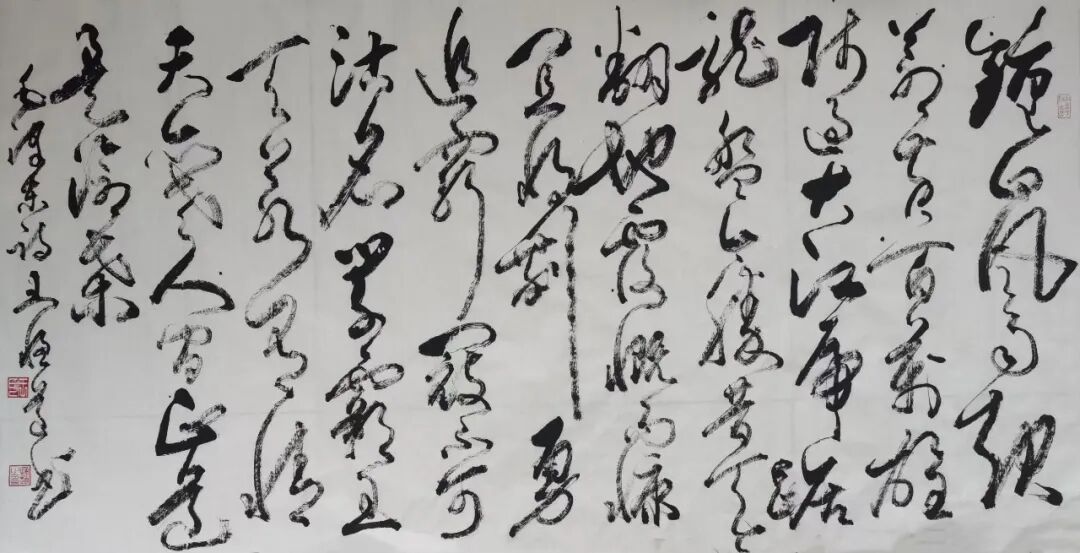 鍾山风雨起
蒼黄百万雄
师过大江虎踞
龍盤今勝昔天
翻地覆慨而慷
宜将剩勇
追窮寇不可
沽名学霸王
天若有情
天亦老人间正道
是滄桑
毛泽东诗 王 书